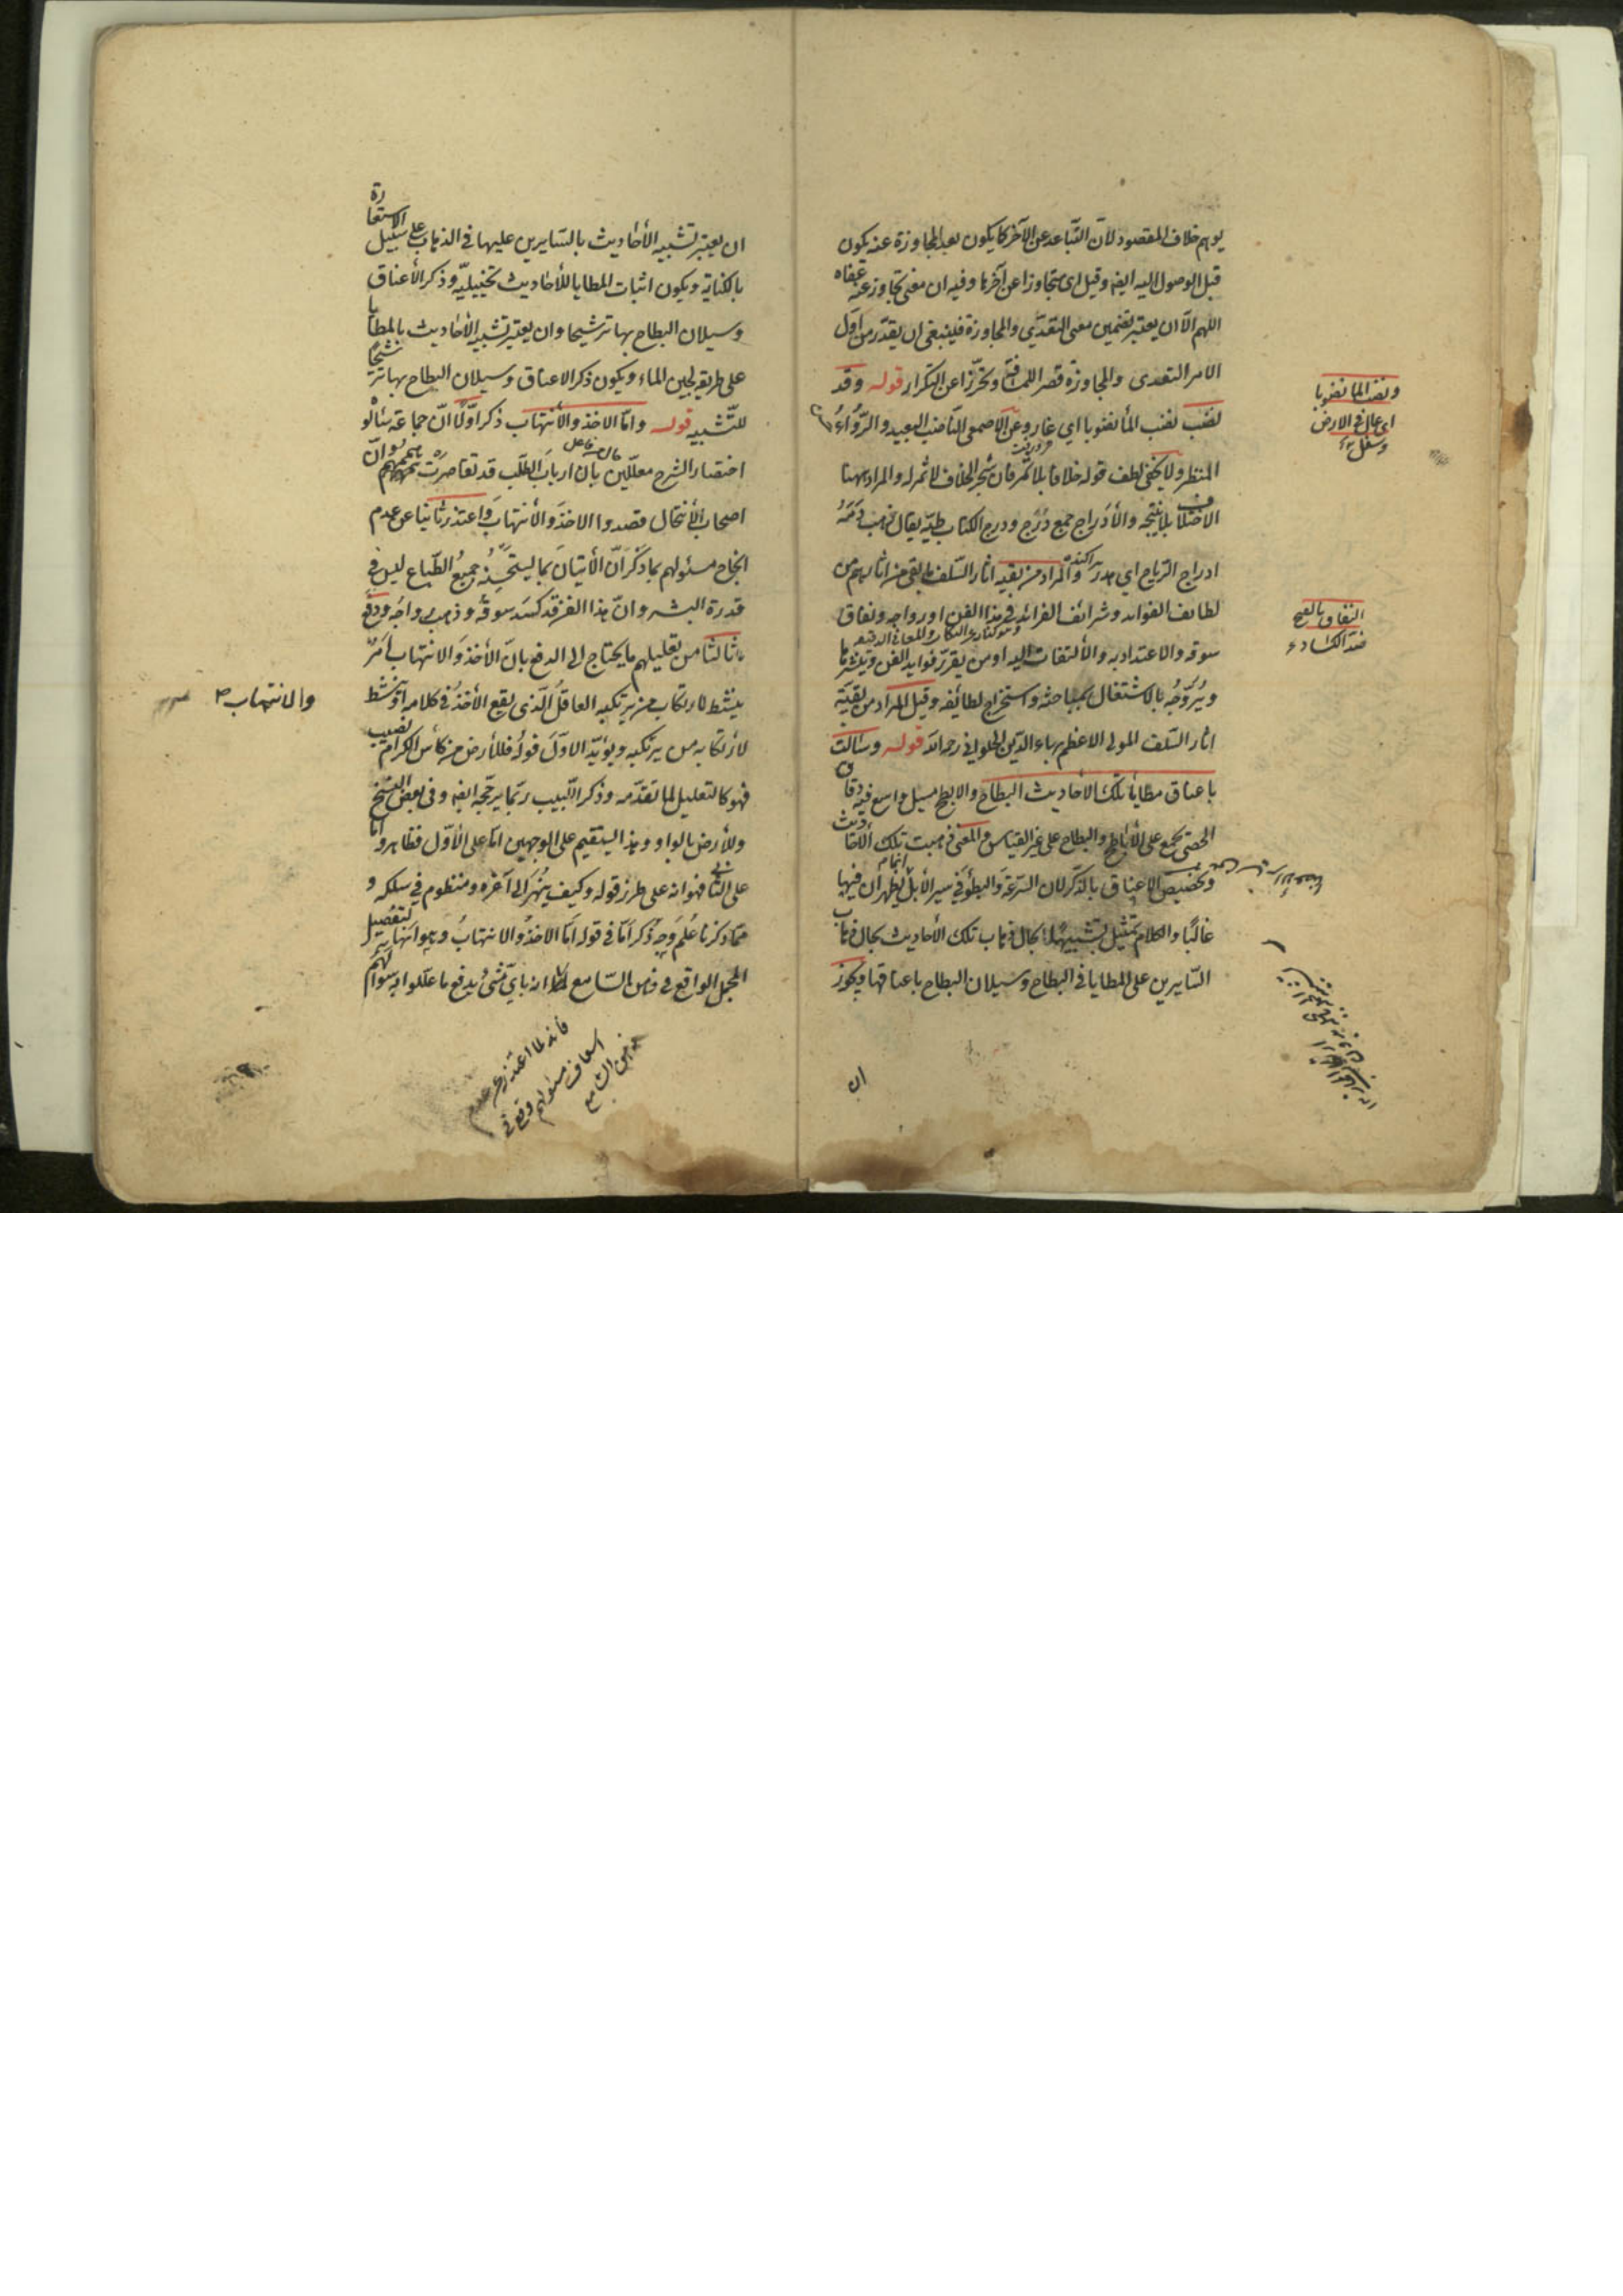 يوهم خلاف المقصود لان التباعد عن الآخر كما يكون بعد المجاوزة عنه يكون
قبل الوصول اليه ايضا وقيل اى متجاوزا عن آخرها وفيه ان معنى تجاوز عنه عفاه
اللهم الا ان يعتبر تضمين معنى التعدّي والمجاوزة فلينبغى ان يقدّر من اوّل
الامر التعدى والمجاوزة قصر اللمسافة وتحرّزا عن التكرار قوله وقد
نضب نضب الماء نضوبا اي غار وعن الاصمعى الناضب البعيد والرُّوَاءُ
المنظر ولا يخفى لطف قوله خلافا بلا ثمر فان شجر الخلاف لا ثمر له والمراد ههنا
الاختلاف بلا نتيجة والأدراج جمع دَرَج ودرج الكتاب طيّه يقال ذهب دمه
ادراج الرياح اي هدر والمراد من بقية اثار السّلف ما بقى من اثارهم من
لطائف الفوائد وشرائف الفرائد في هذا الفن او رواجه ونفاق
سوقه والاعتداد به والألتفات اليه او من يقرّر فوايد الفن وينشرها
ويُرَوّجُه بالاشتغال بمباحثه واستخراج لطائفه وقيل المراد من بقيّة
اثار السّلف المولى الاعظم بهاء الدّين الحلوانى رحمه الله قوله وسالت
باعناق مطايا تلك الاحاديث البطاح والابطح مسيل واسع فيه دقاق
الحصى يجمع على الأباطح والبطاح على غير القياس والمعنى ذهبت تلك الأحاديث
وتخصيص الاعناق بالذكر لان السرعة والبطؤ في سير الأبل يظهران فيها
غالبًا والكلام تمثيل تشبيهًا لحال ذهاب تلك الأحاديث بحال ذهاب
السّايرين على المطايا في البطاح وسيلان البطاح باعناقها ويجوز
ان
ونضب الماء نضوبا
اى غار فى الارض
وسفل
النفاق بالفتح
ضد الكساد
ان يعتبر تشبيه الأحاديث بالسّايرين عليها فى الذهاب على سبيل الاستعارة
بالكناية ويكون اثبات المطايا للأحاديث تخييليّة وذكر الأعناق
وسيلان البطاح بها ترشيحا وان يعتبر تشبيه الأحاديث بالمطايا
على طريقة لجين الماء ويكون ذكر الاعناق وسيلان البطاح بها ترشيحًا
للتّشبيه قوله وامّا الاخذ والأنتهاب ذكر اوّلًا انّ جماعة سألوه
اختصار الشرح معلّلين بان ارباب الطلب قد تقاصرت هممهم وانّ
اصحاب الأنتحال قصدوا الاخذ والأنتهاب واعتذر ثانيا عن عدم
انجاح مسئولهم بما ذكر انّ الأتيان بما يستحسنه جميعُ الطّباع ليس في
قدرة البشر وان هذا الفن قد كسد سوقه وذهب رواجه ودفع
ثالثا من تعليلهم ما يحتاج الى الدفع بان الأخذ والانتهاب امرٌ
ينشط لارتكابه من يرتكبه العاقل الّذى يقع الأخذُ فى كلامه او ينشط
لارتكابه من يرتكبه ويؤيّد الاوّل قوله فللأرض من كأس الكرام نصيب
فهو كالتعليل لما تقدّمه وذكر اللّبيب ربّما يرجّحه ايضا وفى بعض النسخ
وللأرض بالواو وهذا ليستقيم على الوجهين امّا على الأوّل فظاهر وامّا
على الثانى فهو انه على طرز قوله وكيف ينهر الى آخره ومنظوم في سلكه و
ممّا ذكرنا عُلم وَجه ذكر امّا فى قوله امّا الاخذُ والانتهابُ وهو انّها لتفصيل
المجمل الواقع في ذهن السّامع انه باىّ شئ يدفع ما علّلوا به سوالهم
والانتهاب
فانه لما اعتذر عن عدم
اسعاف مسئولهم وقع فى
ذهن السامع